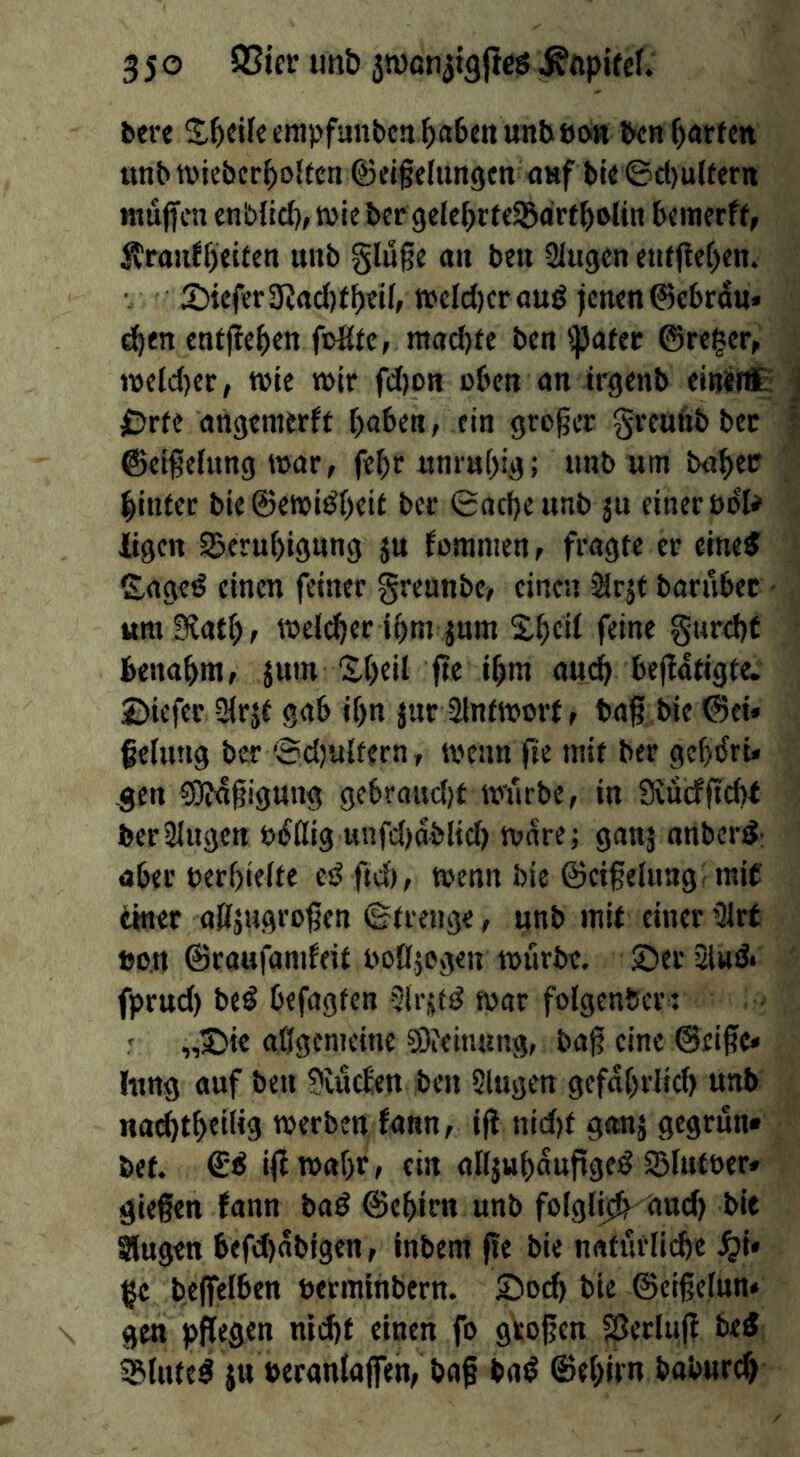 350 Vier und zwanzigstes Kapitel.
dere Theile empfunden haben und von den harten
und wiederholten Geißelungen auf die Schultern
müssen endlich, wie der gelehrte Bartholin bemerkt,
Krankheiten und Flüße an den Augen entstehen.
Dieser Nachtheil, welcher aus jenen Gebräu-
chen entstehen sollte, machte den Pater Gretzer,
welcher, wie wir schon oben an irgend einem
Orte angemerkt haben, ein großer Freund der
Geißelung war, sehr unruhig; und um daher
hinter die Gewisheit der Sache und zu einer völ-
ligen Beruhigung zu kommen, fragte er eines
Tages einen seiner Freunde, einen Arzt darüber
um Rath, welcher ihm zum Theil seine Furcht
benahm, zum Theil sie ihm auch bestätigte.
Dieser Arzt gab ihn zur Antwort, daß die Gei-
ßelung der Schultern, wenn sie mit der gehöri-
gen Mäßigung gebraucht würde, in Rücksicht
der Augen völlig unschädlich wäre; ganz anders
aber verhielte es sich, wenn die Geißelung mit
einer allzugroßen Strenge, und mit einer Art
von Graufamkeit vollzogen würde. Der Aus-
spruch des besagten Arzts war folgender:
„Die allgemeine Meinung, daß eine Geiße-
lung auf den Rücken den Augen gefährlich und
nachtheilig werden kann, ist nicht ganz gegrün-
det. Es ist wahr, ein allzuhäufiges Blutver-
gießen kann das Gehirn und folglich auch die
Augen beschädigen, indem sie die natürliche Hi-
tze desselben vermindern. Doch die Geißelun-
gen pflegen nicht einen so großen Verlust des
Blutes zu veranlassen, daß das Gehirn dadurch